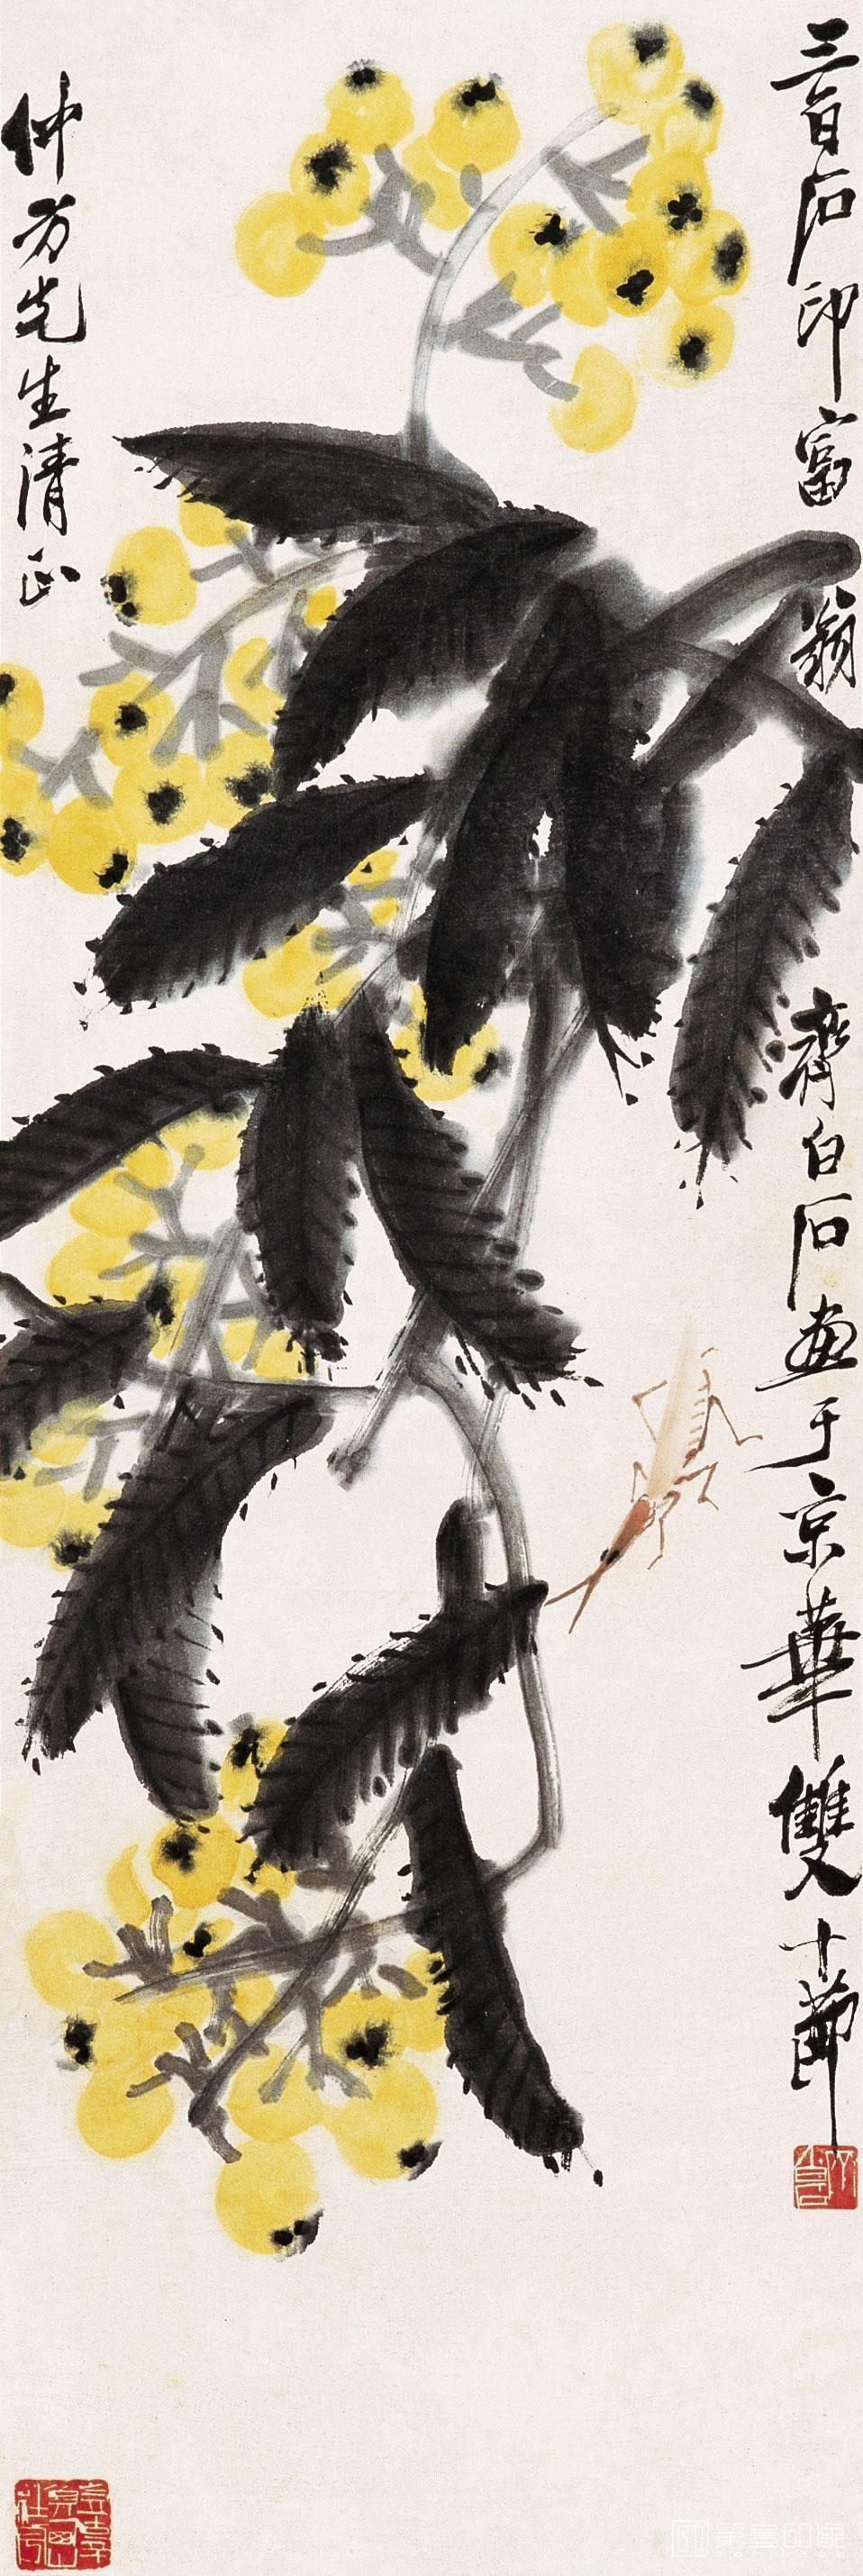 三百石印富翁齊白石画于京華雙十節
仲方先生清正